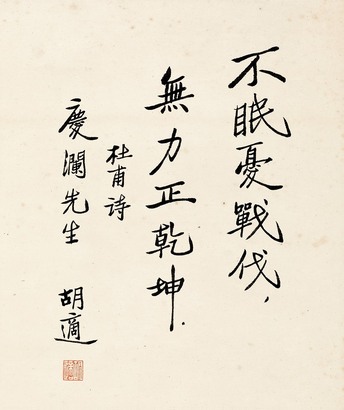 不眠憂戰伐，
無力正乾坤．
杜甫詩
慶瀾先生
胡適